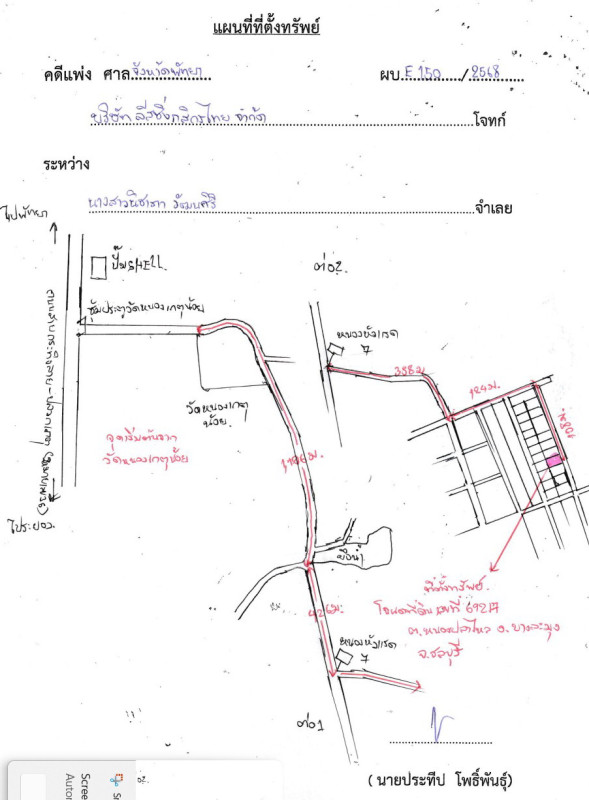 แผนที่ที่ตั้งทรัพย์
คดีแพ่ง ศาล จังหวัดพัทยา ผบ. E 150 / 2568
บริษัท ลีสซิ่งกสิกรไทย จำกัด โจทก์
ระหว่าง
นางสาวนิชาภา จำเลย
ไปพัทยา
ปั๊ม SHELL
ต่อ2.
ซุ้มประตูวัดหนองเกตุน้อย
วัดหนองเกตุ
น้อย
จุดเริ่มต้นจาก
วัดหนองเกตุน้อย
ไประยอง
358 ม.
124 ม.
108 ม.
บึงน้ำ
426 ม.
ที่ตั้งทรัพย์
โฉนดที่ดินเลขที่ 69217
ต.หนองปลาไหล อ.บางละมุง
จ.ชลบุรี
7
7
ต่อ1
(นายประทีป โพธิ์พันธุ์)
Scree
Autor